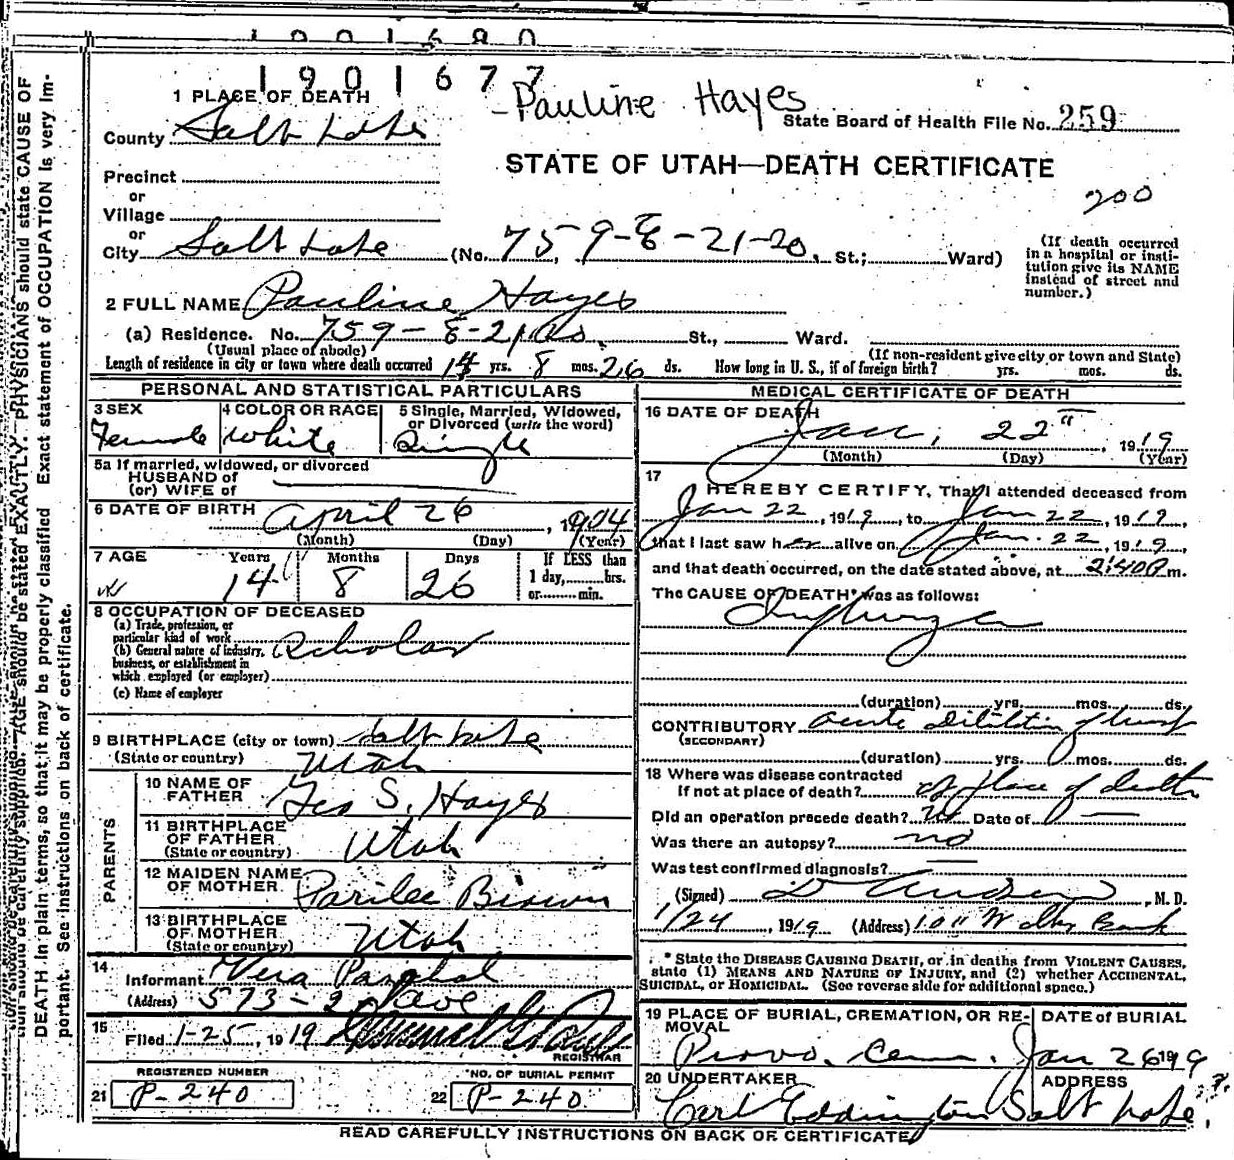 1901680
1901677
Pauline Hayes
1 PLACE OF DEATH
State Board of Health File No. 259
County Salt Lake
STATE OF UTAH—DEATH CERTIFICATE
Precinct
or
200
Village
or
City Salt Lake (No. 759-E-21-So. St.; Ward)
(If death occurred in a hospital or institution give its NAME instead of street and number.)
2 FULL NAME Pauline Hayes
(a) Residence. No. 759-E-21 So. St., Ward.
(Usual place of abode) (If non-resident give city or town and State)
Length of residence in city or town where death occurred 14 yrs. 8 mos. 26 ds. How long in U. S., if of foreign birth? yrs. mos. ds.
PERSONAL AND STATISTICAL PARTICULARS
3 SEX Female
4 COLOR OR RACE White
5 Single, Married, Widowed, or Divorced (write the word) Single
5a If married, widowed, or divorced
HUSBAND of
(or) WIFE of
6 DATE OF BIRTH April 26, 1904
(Month) (Day) (Year)
7 AGE Years Months Days If LESS than
14 8 26 1 day, hrs.
or min.
8 OCCUPATION OF DECEASED
(a) Trade, profession, or
particular kind of work Scholar
(b) General nature of industry,
business, or establishment in
which employed (or employer)
(c) Name of employer
9 BIRTHPLACE (city or town) Salt Lake
(State or country) Utah
PARENTS
10 NAME OF FATHER Geo S. Hayes
11 BIRTHPLACE OF FATHER (State or country) Utah
12 MAIDEN NAME OF MOTHER Parilee Brown
13 BIRTHPLACE OF MOTHER (State or country) Utah
14
Informant Vera
(Address) 573-2 ave
15
Filed 1-25, 1919
REGISTRAR
REGISTERED NUMBER
21 P-240
NO. OF BURIAL PERMIT
22 P-240
MEDICAL CERTIFICATE OF DEATH
16 DATE OF DEATH
Jan, 22", 1919
(Month) (Day) (Year)
17
I HEREBY CERTIFY, That I attended deceased from
Jan 22, 1919, to Jan 22, 1919,
that I last saw her alive on Jan. 22, 1919,
and that death occurred, on the date stated above, at 2:40 P m.
The CAUSE OF DEATH* was as follows:
Influenza
(duration) yrs. mos. ds.
CONTRIBUTORY acute dilitation of heart
(SECONDARY)
(duration) yrs. mos. ds.
18 Where was disease contracted
If not at place of death? at place of death
Did an operation precede death? no Date of —
Was there an autopsy? no
Was test confirmed diagnosis? —
(Signed) M. D.
1/24, 1919 (Address) 1011 Bank
* State the DISEASE CAUSING DEATH, or in deaths from VIOLENT CAUSES,
state (1) MEANS AND NATURE OF INJURY, and (2) whether ACCIDENTAL,
SUICIDAL, or HOMICIDAL. (See reverse side for additional space.)
19 PLACE OF BURIAL, CREMATION, OR REMOVAL
Provo. Cem.
DATE of BURIAL
Jan 26 1919
20 UNDERTAKER
Carl Eddington
ADDRESS
Salt Lake
READ CAREFULLY INSTRUCTIONS ON BACK OF CERTIFICATE
should be carefully supplied. AGE should be stated EXACTLY. PHYSICIANS should state CAUSE OF
DEATH in plain terms, so that it may be properly classified. Exact statement of OCCUPATION is very im-
portant. See instructions on back of certificate.